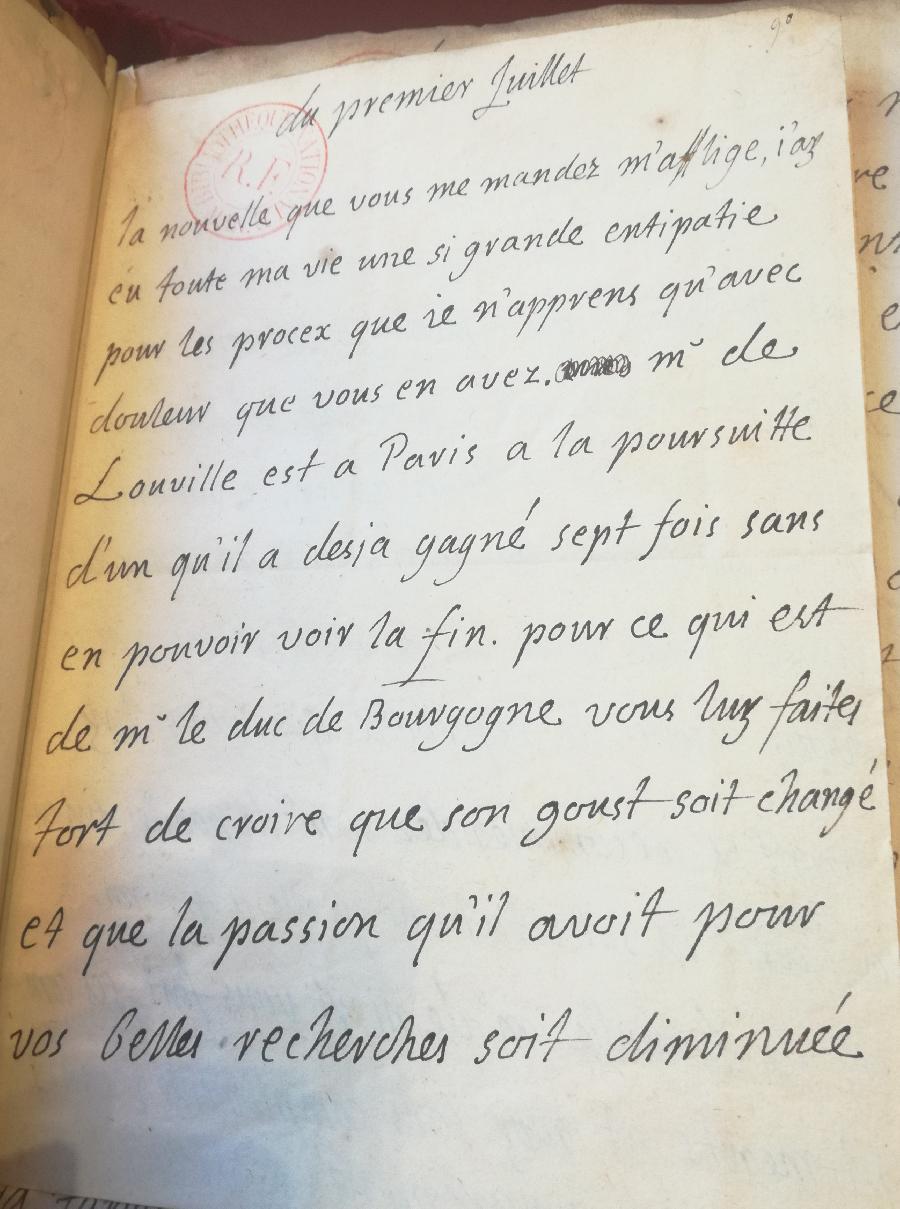 90
du premier Juillet
BIBLIOTHEQUE NATIONALE
R.F.
la nouvelle que vous me mandez m'afflige, i'ay
eu toute ma vie une si grande entipatie
pour les procex que ie n'apprens qu'avec
douleur que vous en avez. mr de
Louville est a Paris a la poursuitte
d'un qu'il a desja gagné sept fois sans
en pouvoir voir la fin. pour ce qui est
de mr le duc de Bourgogne vous luy faites
tort de croire que son goust soit changé
et que la passion qu'il avoit pour
vos belles recherches soit diminuée